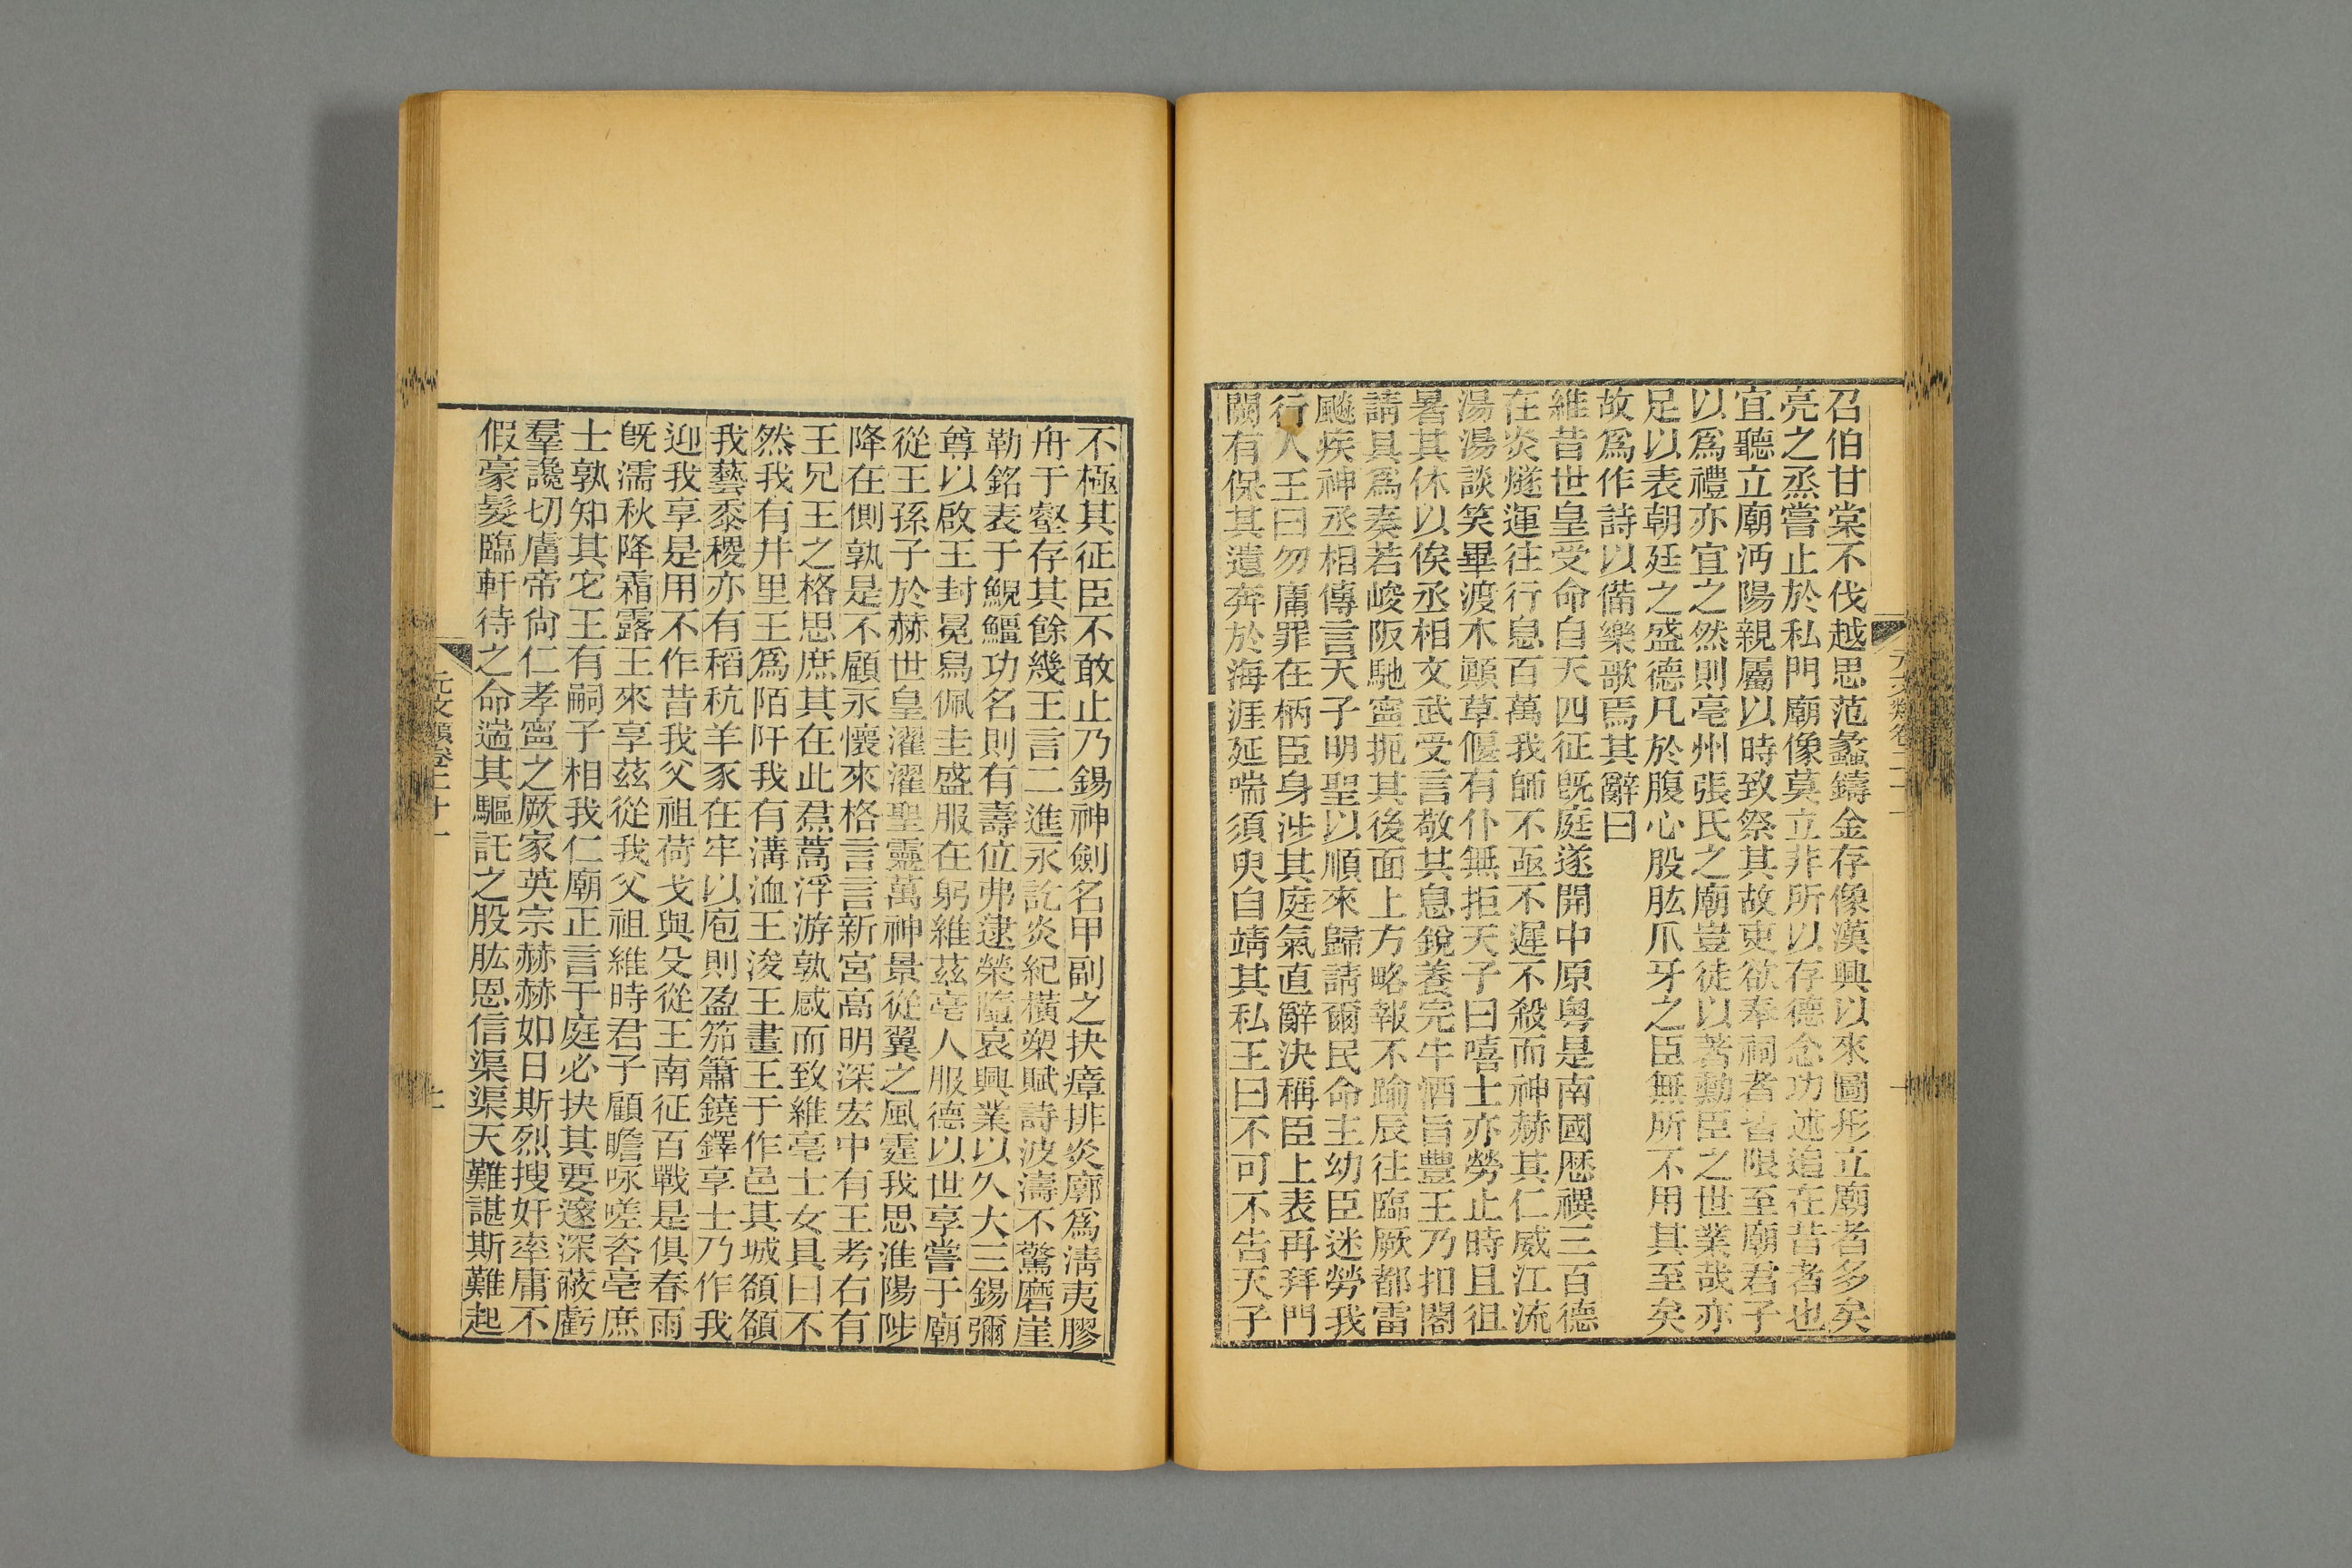 召伯甘棠不伐越思范蠡鑄金存像漢興以來圖形立廟者多矣
亮之烝嘗止於私門廟像莫立非所以存德念功述追在昔者也
宜聽立廟沔陽親屬以時致祭其故吏欲奉祠者皆限至廟君子
以爲禮亦宜之然則亳州張氏之廟豈徒以著勳臣之世業哉亦
足以表朝廷之盛德凡於腹心股肱爪牙之臣無所不用其至矣
故爲作詩以備樂歌焉其辭曰
維昔世皇受命自天四征旣庭遂開中原粵是南國歷禩三百德
在炎燧運往行息百萬我師不亟不遲不殺而神赫其仁威江流
湯湯談笑畢渡木顚草偃有仆無拒天子曰嘻士亦勞止時且徂
暑其休以俟丞相文武受言敬其息銳養完牛酒旨豐王乃扣閤
請具爲奏若峻阪馳寧扼其後面上方略報不踰辰往臨厥都雷
颷疾神丞相傳言天子明聖以順來歸請爾民命主幼臣迷勞我
行人王曰勿庸罪在柄臣身涉其庭氣直辭決稱臣上表再拜門
闕有保其遺奔於海涯延喘須臾自靖其私王曰不可不告天子
不極其征臣不敢止乃錫神劍名甲副之抉瘴排炎廓爲淸夷膠
舟于壑存其餘幾王言二進永訖炎紀橫槊賦詩波濤不驚磨崖
勒銘表于鯢鱷功名則有壽位弗逮榮隨哀興業以久大三錫彌
尊以啟王封冕舄佩圭盛服在躬維茲亳人服德以世享嘗于廟
從王孫子於赫世皇濯濯聖靈萬神景從翼之風霆我思淮陽陟
降在側孰是不顧永懷來格言言新宮高明深宏中有王考右有
王兄王之格思庶其在此焄蒿浮游孰感而致維亳士女具曰不
然我有井里王爲陌阡我有溝洫王浚王畫王于作邑其城額額
我藝黍稷亦有稻秔羊豕在牢以庖則盈笳簫鐃鐸享士乃作我
迎我享是用不作昔我父祖荷戈與殳從王南征百戰是俱春雨
旣濡秋降霜露王來享茲從我父祖維時君子顧瞻咏嗟咨亳庶
士孰知其它王有嗣子相我仁廟正言于庭必抉其要邃深蔽虧
羣讒切膚帝尙仁孝寧之厥家英宗赫赫如日斯烈搜奸率庸不
假豪髮臨軒待之命遄其驅託之股肱恩信渠渠天難諶斯難起
元文類卷二十一